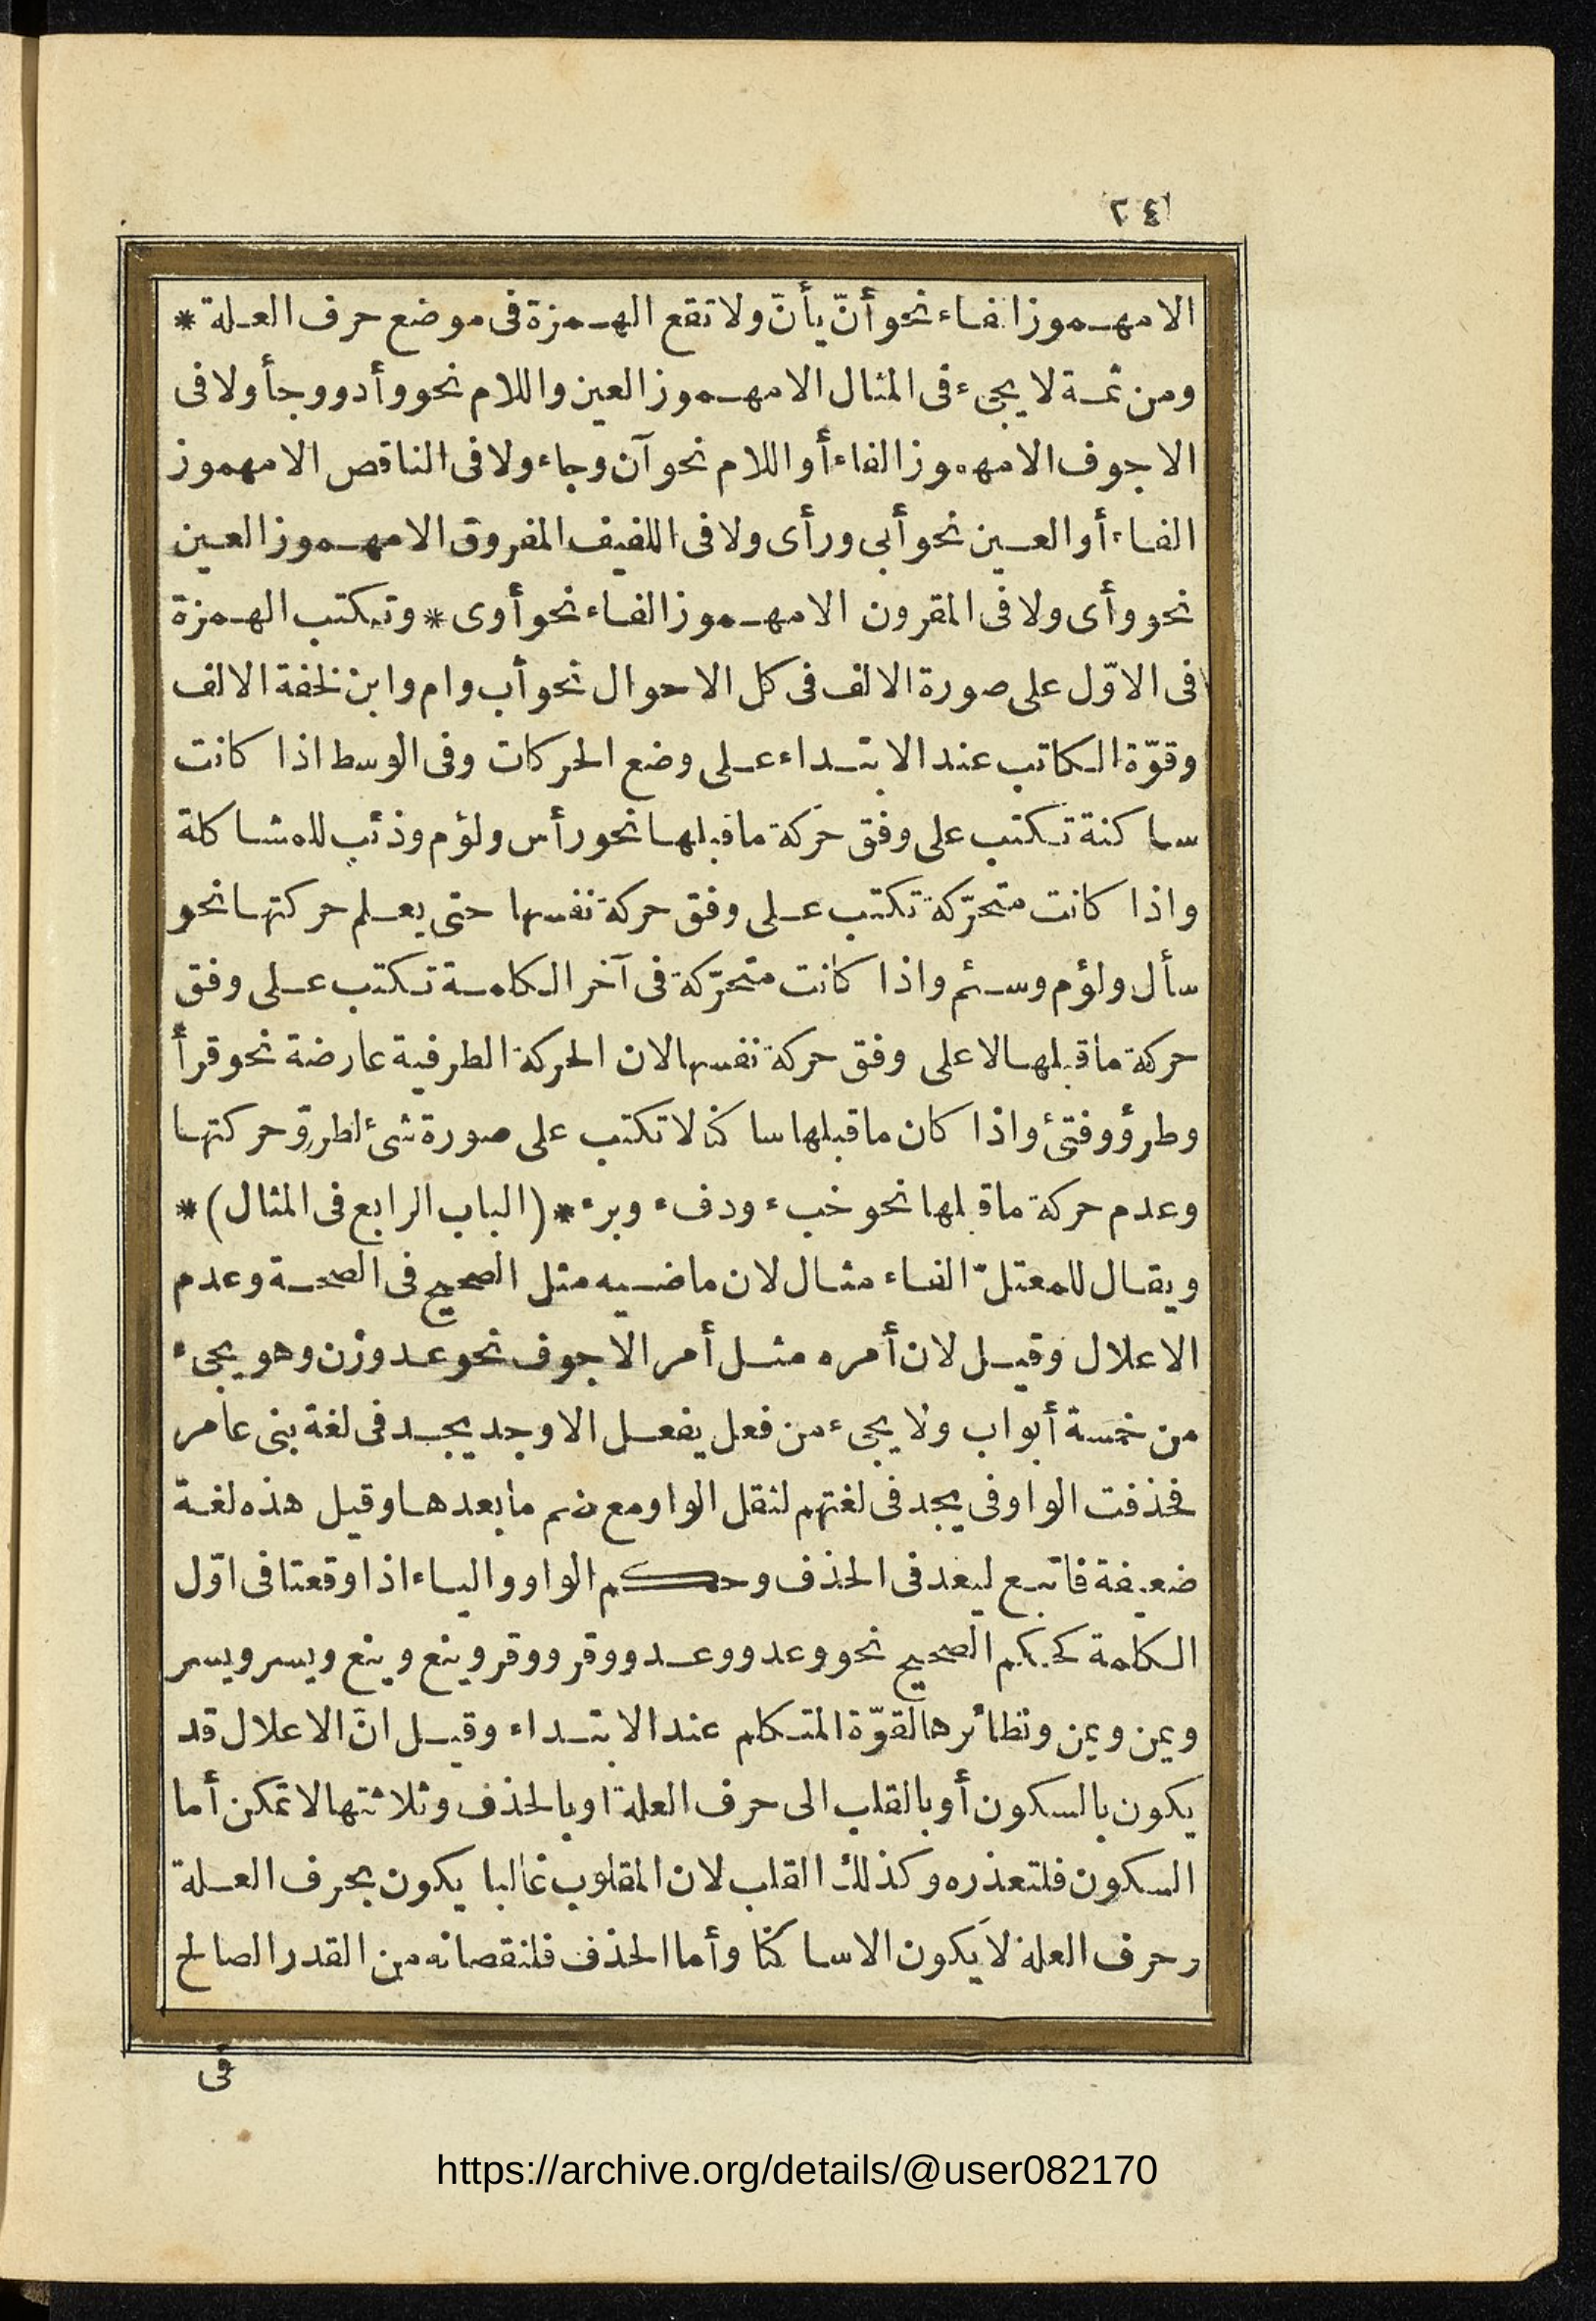 ٢٤
الا مهموز الفاء نحو أنّ يأنّ ولا تقع الهمزة فى موضع حرف العلة *
ومن ثمة لا يجىء فى المثال الا مهموز العين واللام نحو وأد ووجأ ولا فى
الاجوف الا مهموز الفاء أو اللام نحو آن وجاء ولا فى الناقص الا مهموز
الفاء أو العين نحو أبى ورأى ولا فى اللفيف المفروق الا مهموز العين
نحو وأى ولا فى المقرون الا مهموز الفاء نحو أوى * وتكتب الهمزة
فى الاوّل على صورة الالف فى كل الاحوال نحو أب وام وابن لخفة الالف
وقوّة الكاتب عند الابتداء على وضع الحركات وفى الوسط اذا كانت
ساكنة تكتب على وفق حركة ما قبلها نحو رأس ولؤم وذئب للمشاكلة
واذا كانت متحرّكة تكتب على وفق حركة نفسها حتى يعلم حركتها نحو
سأل ولؤم وسئم واذا كانت متحرّكة فى آخر الكلمة تكتب على وفق
حركة ما قبلها لا على وفق حركة نفسها لان الحركة الطرفية عارضة نحو قرأ
وطرؤ وفتئ واذا كان ما قبلها ساكنا لا تكتب على صورة شئ لطروّ حركتها
وعدم حركة ما قبلها نحو خبء ودفء وبرء * (الباب الرابع فى المثال) *
ويقال للمعتلّ الفاء مثال لان ماضيه مثل الصحيح فى الصحة وعدم
الاعلال وقيل لان أمره مثل أمر الاجوف نحو عد وزن وهو يجىء
من خمسة أبواب ولا يجىء من فعل يفعل الا وجد يجد فى لغة بنى عامر
فحذفت الواو فى يجد فى لغتهم لثقل الواو مع ضم ما بعدها وقيل هذه لغة
ضعيفة فاتبع ليعد فى الحذف وحكم الواو والياء اذا وقعتا فى اوّل
الكلمة كحكم الصحيح نحو وعد ووعد ووقر ووقر وينع وينع ويسر ويسر
ويمن ويمن ونظائرها لقوّة المتكلم عند الابتداء وقيل انّ الاعلال قد
يكون بالسكون أو بالقلب الى حرف العلة او بالحذف وثلاثتها لا تمكن أما
السكون فلتعذره وكذلك القلب لان المقلوب غالبا يكون بحرف العلة
وحرف العلة لا يكون الا ساكنا وأما الحذف فلنقصانه من القدر الصالح
فى
https://archive.org/details/@user082170